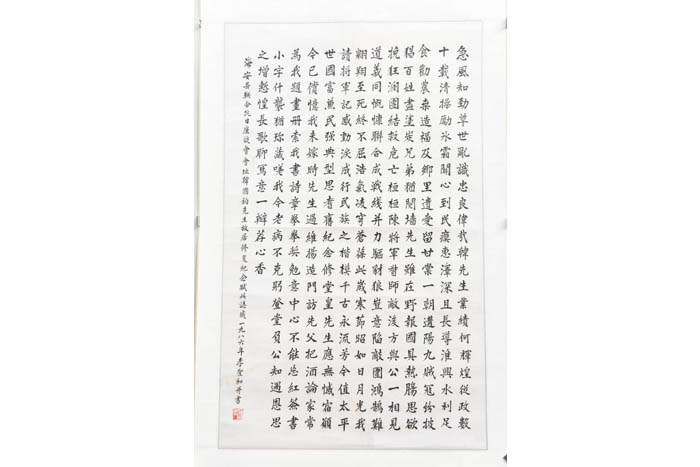 急風知勁草世亂識忠良偉哉韓先生業績何輝煌從政數
十載清操勵冰霜關心到民瘼惠澤深且長導淮興水利足
食勸農桑造福及鄉里遺愛留甘棠一朝遘陽九賊寇紛披
猖百姓盡塗炭兄弟猶鬩牆先生雖在野報國具熱腸思欲
挽狂瀾團結救危亡桓桓陳將軍督師敵後方與公一相見
道義同慨慷聯合成戰線并力驅豺狼豈意陷敵圍鴻鵠難
翱翔至死終不屈浩氣凌穹蒼藐此歲寒節昭如日月光我
請將軍記感動淚成行民族之楷模千古永流芳今值太平
世國富兼民強典型思耆舊紀念修堂皇先生應無憾宿願
今已償憶我未嫁時先生過維揚造門訪先父把酒論家常
為我題畫冊索我書詩章拳拳契勉意中心不能忘紅箋書
小字什襲猶珍藏嗟我今老病不克躬登堂負公知遇恩思
之增慙惶長歌聊寫意一瓣薛心香
海安县联合抗日座谈会會址韓國鈞先生故居修复紀念賦此誌感一九八六年李聖和并書